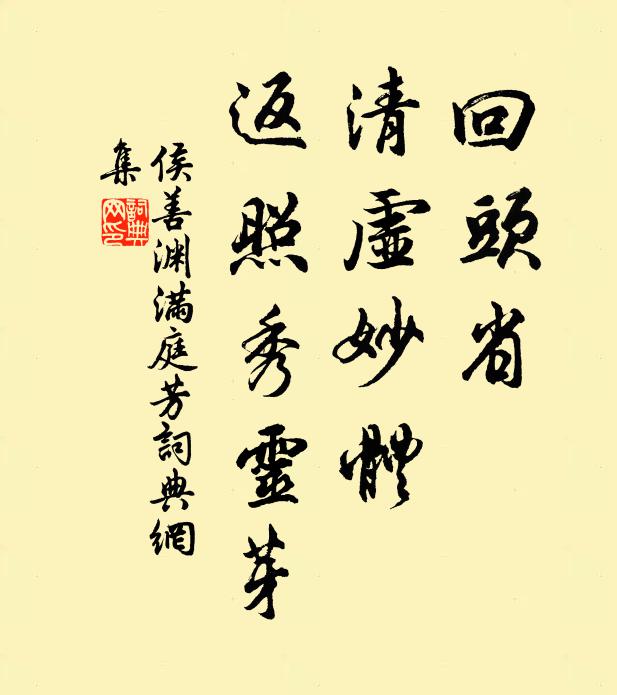 回頭省
清虛妙體
返照秀靈芽
侯善淵滿庭芳詞典網
集
詞典網印